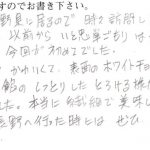 すのでお書き下さい。
野県に居るので 時々訪問し
以前から いと忠 巣ごもり は
今回が初めてでした。
かわいくて、表面のホワイトチョ
餡のしっとりした とろける様
した。本当に 美味し
長野へ行った時には ぜひ